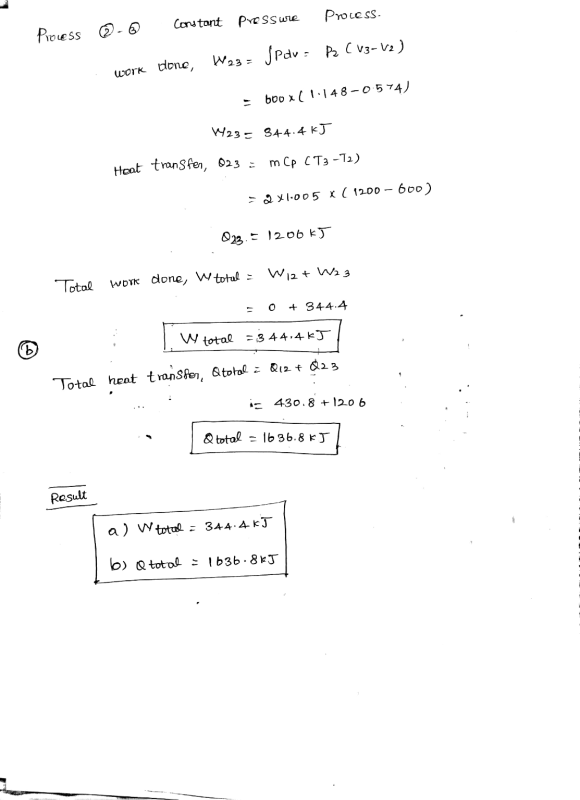 Process ②-③ Constant Pressure Process.
work done, W23 = ∫Pdv = P2 (V3-V2)
= 600 x (1.148-0574)
W23 = 344.4 kJ
Heat transfer, Q23 = mCp (T3-T2)
= 2x1.005 x (1200-600)
Q23 = 1206 kJ
Total work done, W total = W12 + W23
= 0 + 344.4
W total = 344.4kJ
ⓑ
Total heat transfer, Qtotal = Q12 + Q23
= 430.8 + 1206
Q total = 1636.8 kJ
Result
a) W total = 344.4 kJ
b) Q total = 1636.8kJ